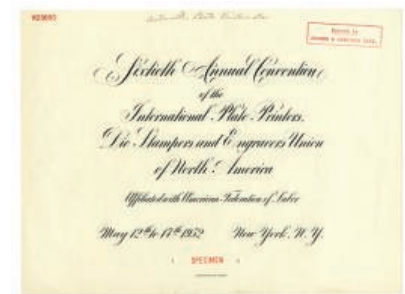 Sixtieth Annual Convention
of the
International Plate Printers,
Die Stampers and Engravers Union
of North America
Affiliated with American Federation of Labor
May 12th to 17th 1952 New York, N.Y.
SPECIMEN